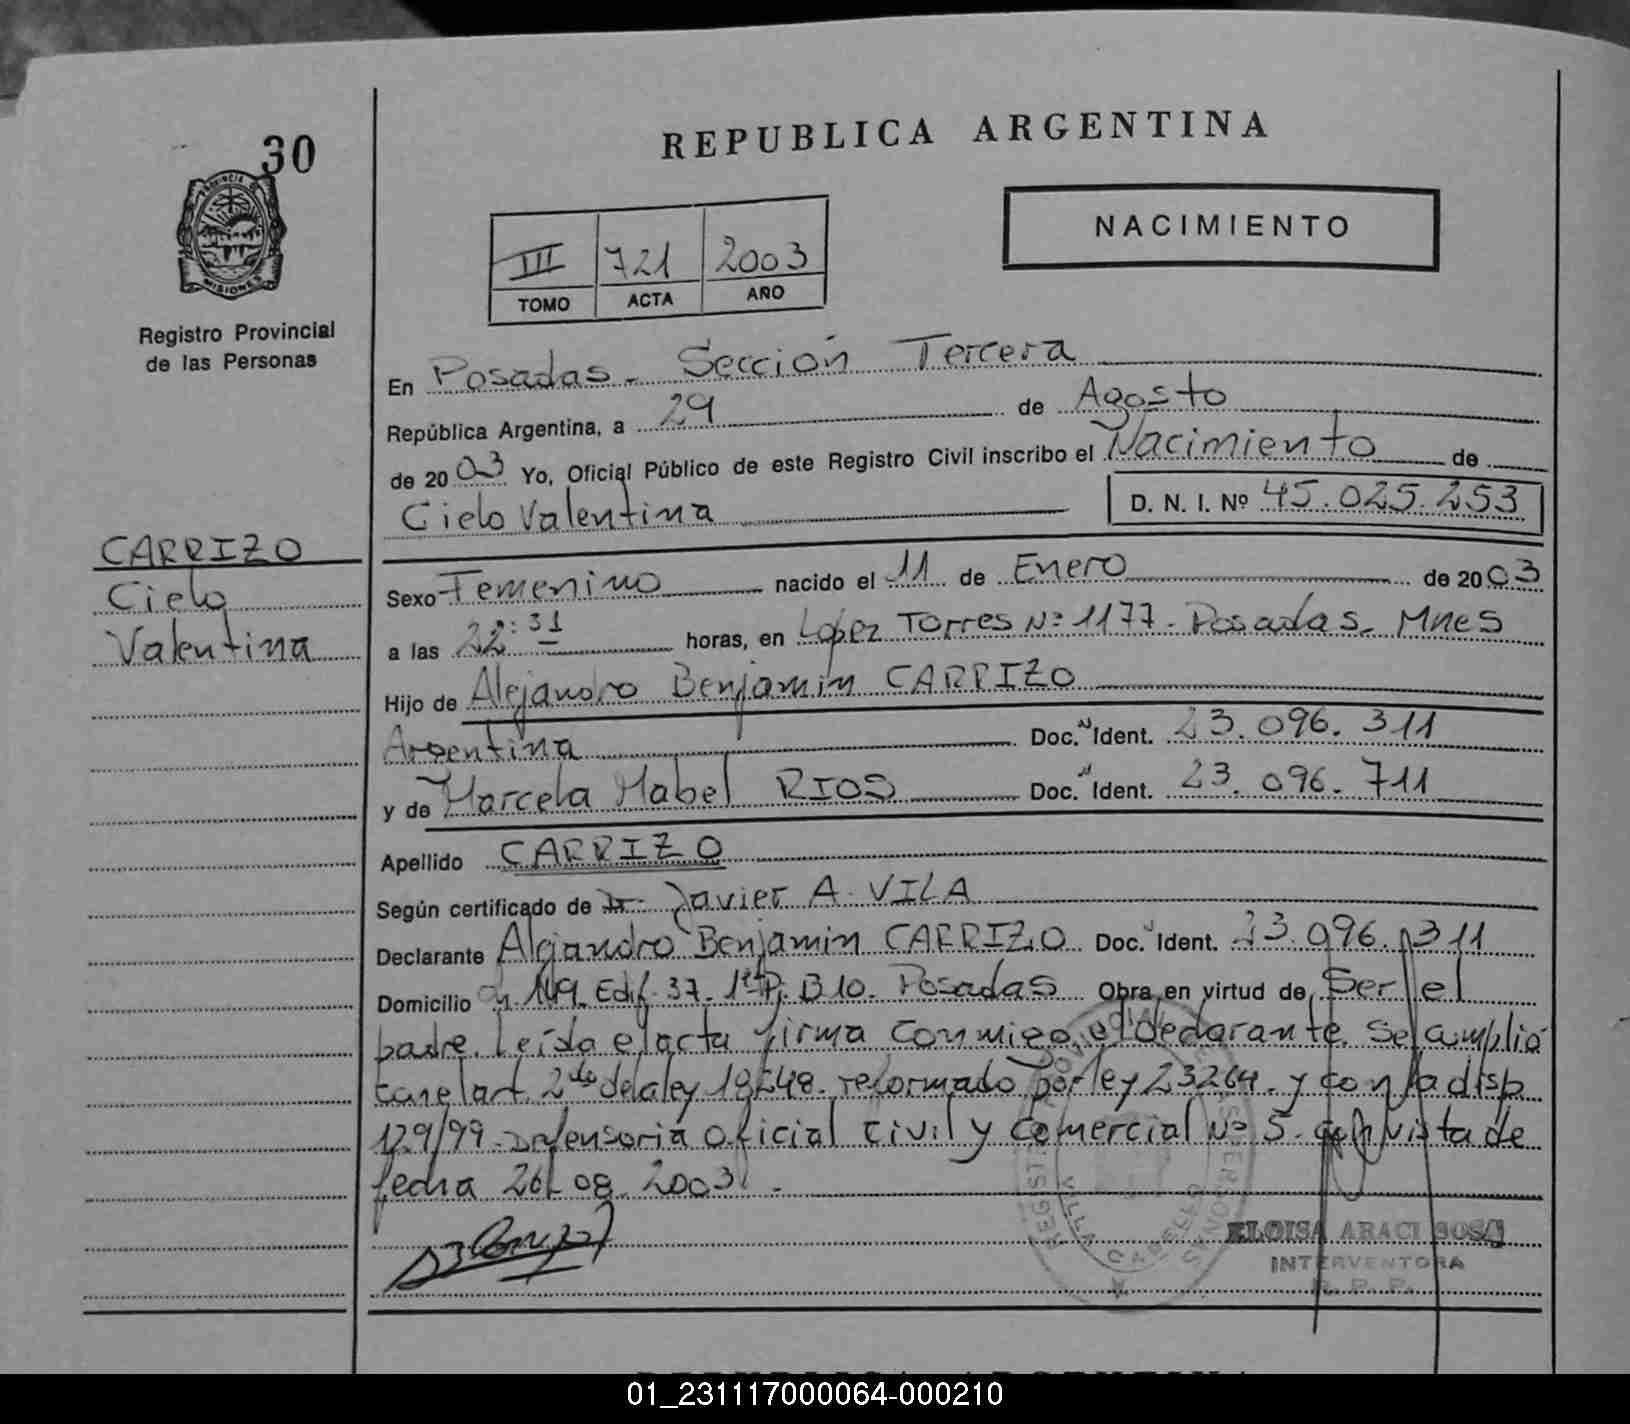 30
REPUBLICA ARGENTINA
NACIMIENTO
PROVINCIA DE
MISIONES
III 721 2003
TOMO ACTA AÑO
Registro Provincial
de las Personas
En Posadas - Sección Tercera
República Argentina, a 29 de Agosto
de 2003 Yo, Oficial Público de este Registro Civil inscribo el Nacimiento de
Cielo Valentina D. N. I. Nº 45.025.253
CARRIZO
Cielo
Valentina
Sexo Femenino nacido el 11 de Enero de 2003
a las 22:31 horas, en López Torres Nº 1177. Posadas. Mnes
Hijo de Alejandro Benjamin CARRIZO
Argentina Doc. Ident. 23.096.311
y de Marcela Mabel RIOS Doc. Ident. 23.096.711
Apellido CARRIZO
Según certificado de Dr. Javier A. VILA
Declarante Alejandro Benjamin CARRIZO Doc. Ident. 23.096.311
Domicilio Ch. 149. Edif. 37. 1er P. B 10. Posadas Obra en virtud de Ser el
padre. Leída el acta firma conmigo el declarante. Se cumplió
con el art. 2do de la ley 18248. reformado por ley 23264. y con la disp
129/99. Defensoria Oficial Civil y Comercial Nº 5. vista de
fecha 26-08-2003.
VILLA CABELLO
ELOISA ARACI SOSA
INTERVENTORA
R. P. P.
REPUBLICA ARGENTINA
01_231117000064-000210